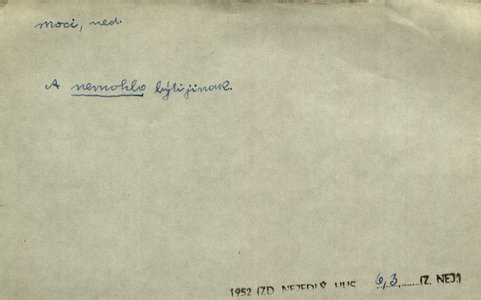 Moci, ned.
A nemohlo býti jinak.
1952 (ZD. NEJEDLÝ, HUS 6,3 (Z. NEJ.)